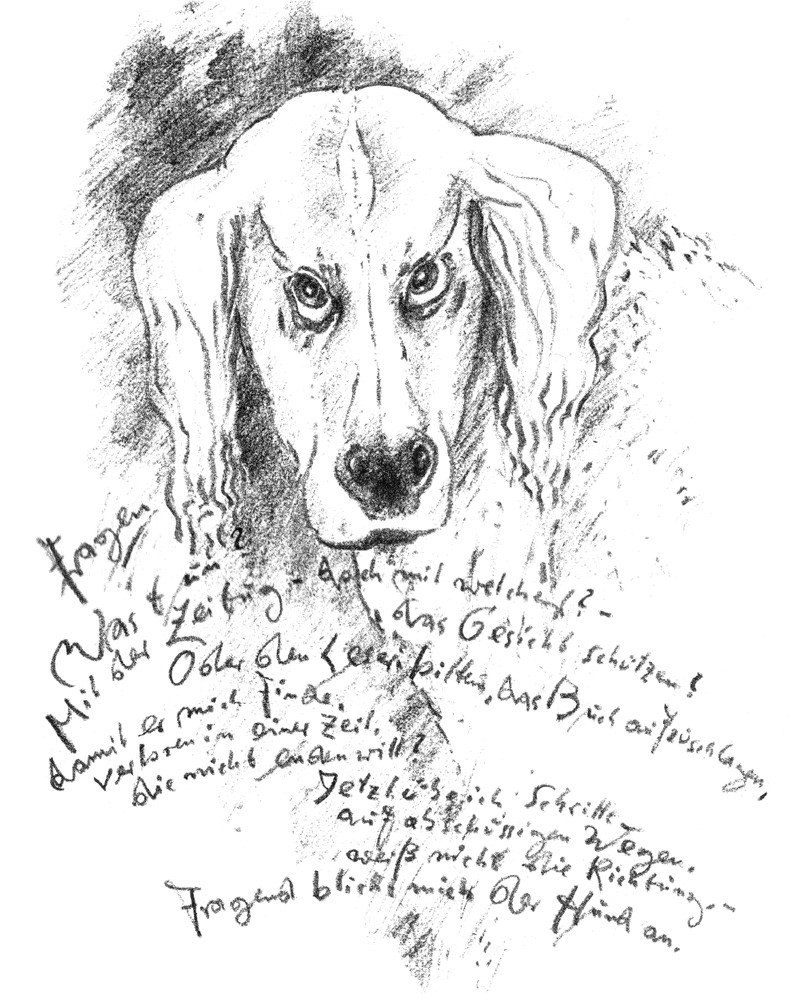 Fragen
Was tun?
Mit der Zeitung - doch mit welcher? -
das Gesicht schützen?
Oder den Leser bitten, das Buch aufzuschlagen,
damit er mich finde,
verloren in einer Zeit,
die nicht enden will?
Jetzt höre ich Schritte
auf abschüssigen Wegen,
weiß nicht die Richtung. -
Fragend blickt mich der Hund an.